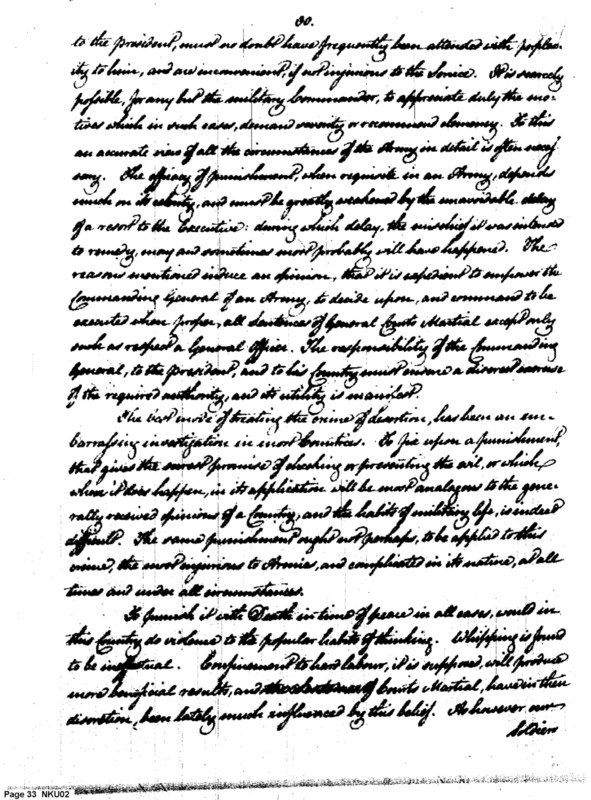 30.
to the President, must no doubt have frequently been attended with perplex-
ity to him, and are inconvenient, if not injurious to the Service. It is scarcely
possible, for any but the military Commander, to appreciate duly the mo-
tives which in such cases, demand severity or recommend clemency. To this
an accurate view of all the circumstances of the Army in detail is often neces
sary. The efficacy of punishment, when requisite in an Army, depends
much on its celerity, and must be greatly weakened by the unavoidable delay
of a resort to the Executive: during which delay, the mischief it was intended
to remedy, may and sometimes most probably will have happened. The
reasons mentioned induce an opinion, that it is expedient to empower the
Commanding General of an Army, to decide upon, and command to be
executed when proper, all Sentences of General Courts Martial except only
such as respect a General Officer. The responsibility of the Commanding
General, to the President, and to his Country must insure a discreet exercise
of the required authority, and its utility is manifest.
The best mode of treating the crime of desertion, has been an em-
barrassing investigation in most Countries. To fix upon a punishment,
that gives the surest promise of checking or preventing the evil, or which
when it does happen, in its application will be most analogous to the gene-
rally received opinions of a Country, and the habits of military life, is indeed
difficult. The same punishment ought not perhaps, to be applied to this
crime, the most injurious to Armies, and complicated in its nature, at all
times and under all circumstances.
To punish it with Death in time of peace in all cases, would in
this Country do violence to the popular habits of thinking. Whipping is found
to be ineffectual. Confinement to hard labour, it is supposed, will produce
more beneficial results, and the Sentences of Courts Martial, have in their
discretion, been lately much influenced by this belief. As however our
Soldiers
Page 33 NKU02